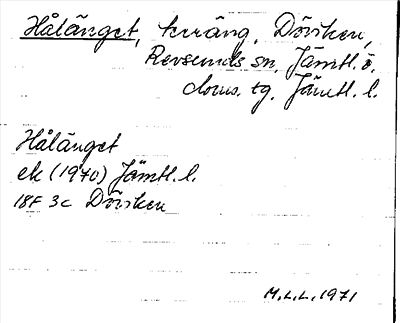 Hålänget, terräng, Döviken,
Revsunds sn, Jämtl. ö.
doms. tg. Jämtl. l.
Hålänget
ek (1970) Jämtl. l.
18F 3c Döviken
M.L.L. 1971